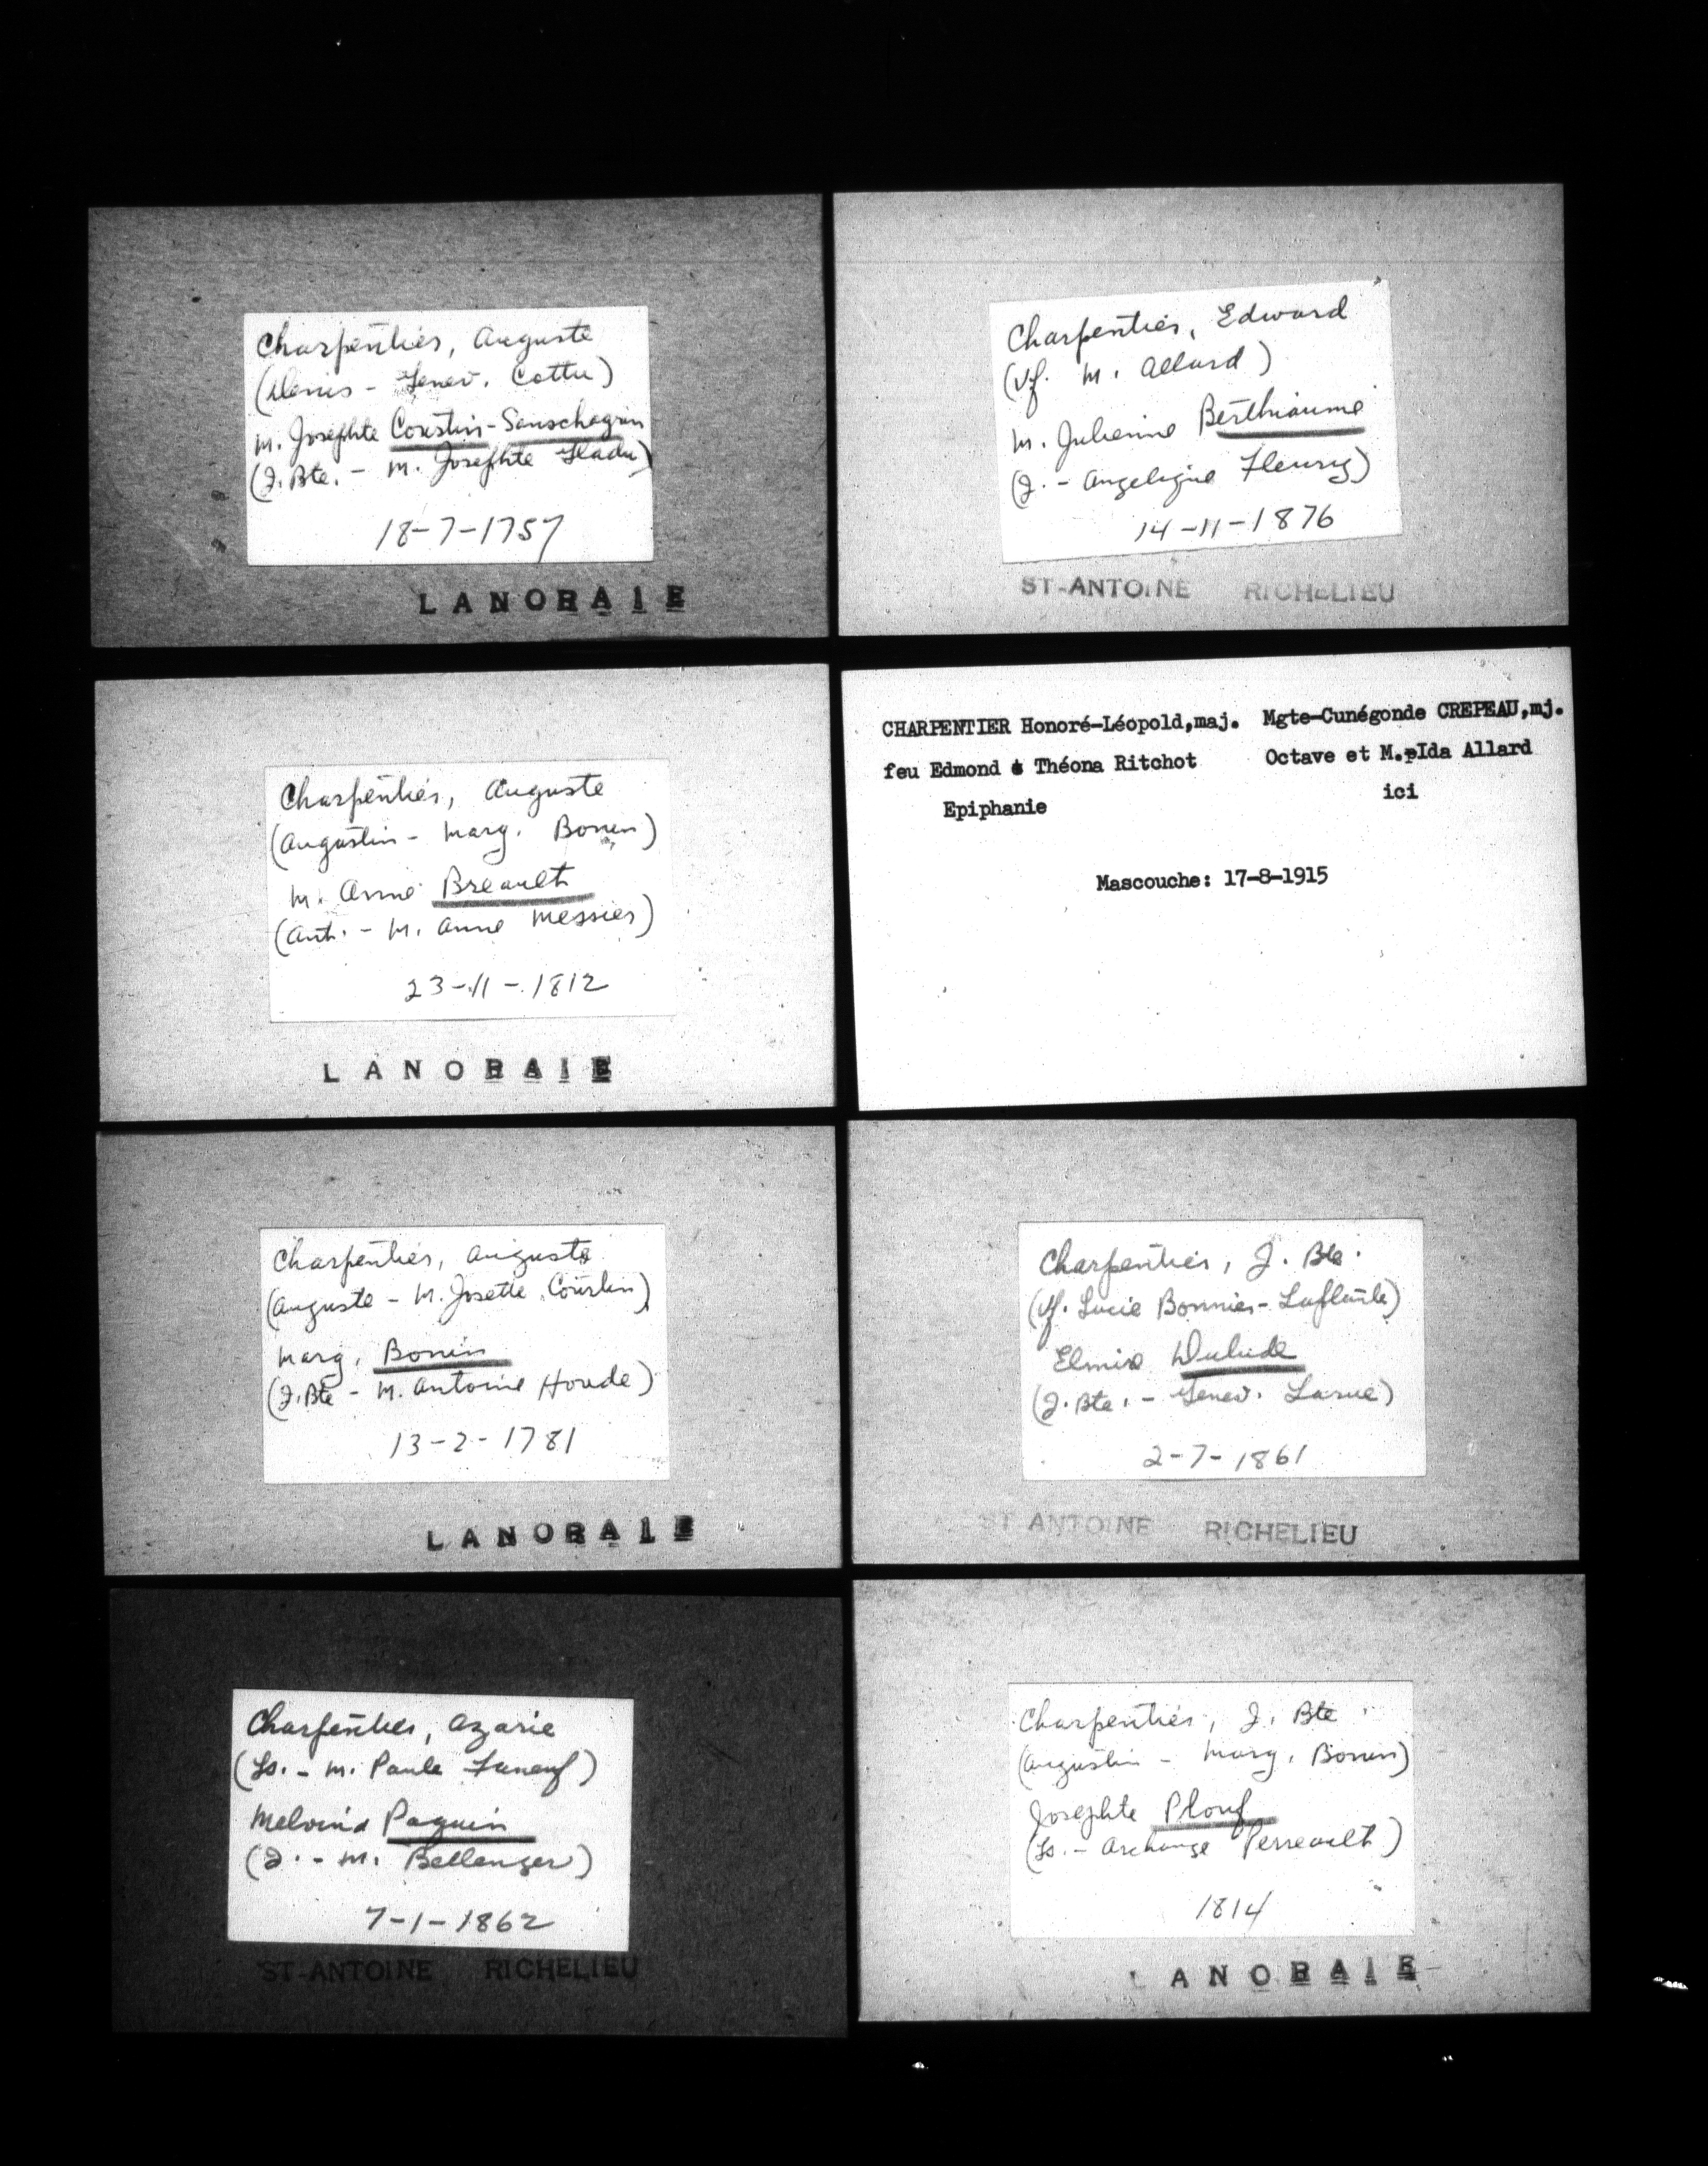 Charpentier, Auguste
(Denis - Genev. Cottu)
M. Josephte Coustin-Sanschagrin
(J. Bte. - M. Josephte Fladu)
18-7-1757
LANORAIE
Charpentier, Auguste
(Augustin - Marg. Bonin)
M. Anne Breault
(Ant. - M. Anne Messier)
23-11-1812
LANORAIE
Charpentier, Auguste
(Auguste - M. Josette Courtin)
Marg. Bonin
(J. Bte - M. Antoine Houde)
13-2-1781
LANORAIE
Charpentier, Azarie
(Ls. - M. Paule Faneuf)
Melvina Paquin
(J. - M. Bellanger)
7-1-1862
ST-ANTOINE RICHELIEU
Charpentier, Edward
(Vf. M. Allard)
M. Julienne Berthiaume
(J. - Angelique Fleury)
14-11-1876
ST-ANTOINE RICHELIEU
CHARPENTIER Honoré-Léopold,maj. Mgte-Cunégonde CREPEAU,mj.
feu Edmond & Théona Ritchot Octave et M.pIda Allard
Epiphanie ici
Mascouche: 17-8-1915
Charpentier, J. Bte.
(Vf. Lucie Bonnier-Laplante)
Elmire Dulude
(J. Bte. - Genev. Larue)
2-7-1861
ST ANTOINE RICHELIEU
Charpentier, J. Bte
(Augustin - Marg. Bonin)
Josephte Plouf
(Ls. - Archange Perreault)
1814
LANORAIE